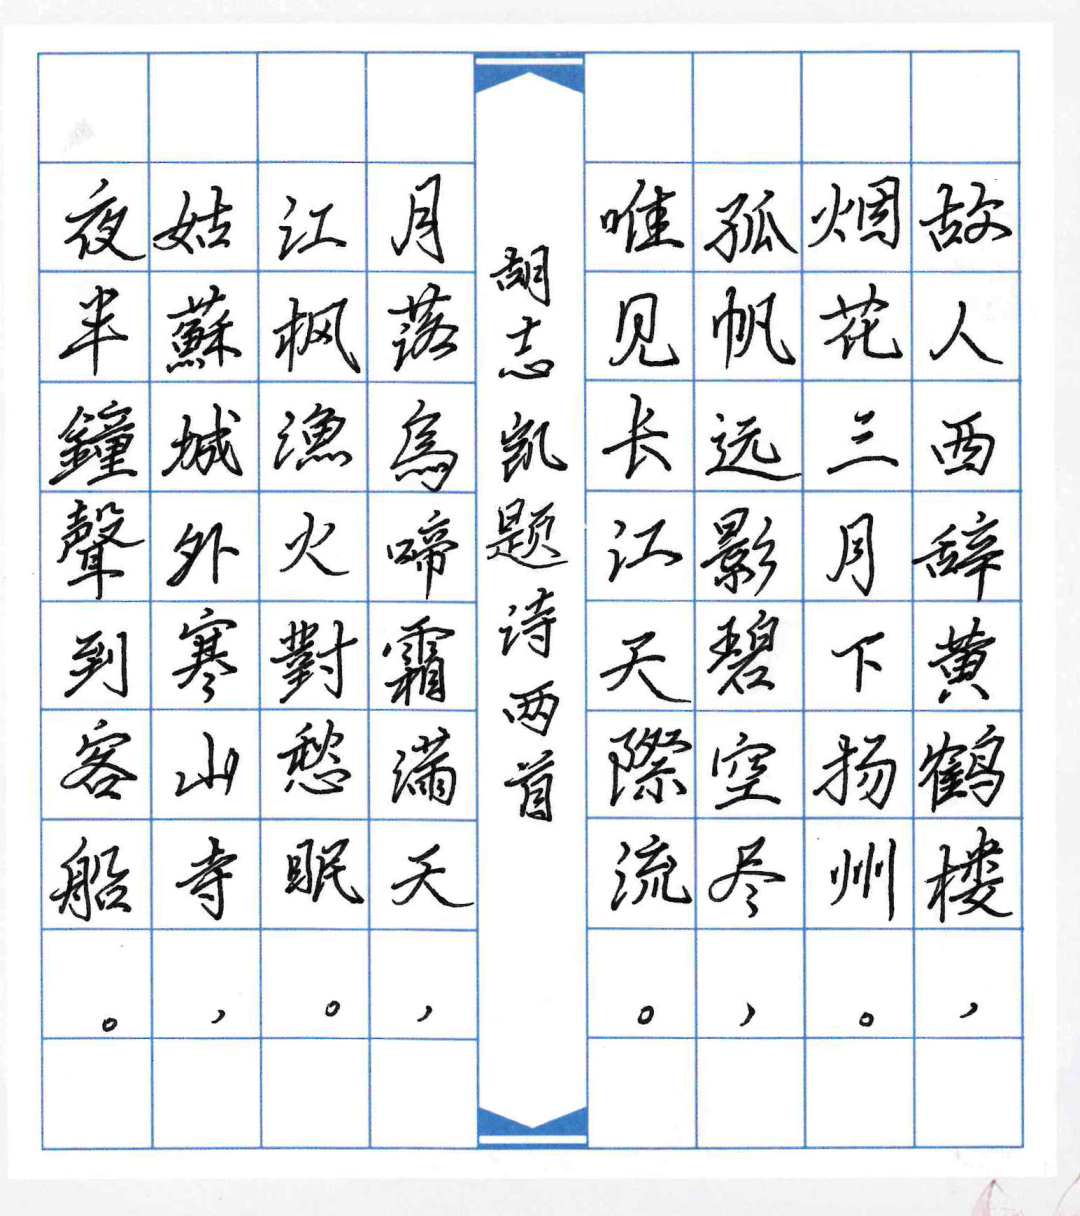 故人西辞黄鹤楼，
烟花三月下扬州。
孤帆远影碧空尽，
唯见长江天際流。
胡志凯题诗两首
月落烏啼霜满天，
江枫漁火對愁眠。
姑蘇城外寒山寺，
夜半鐘聲到客船。